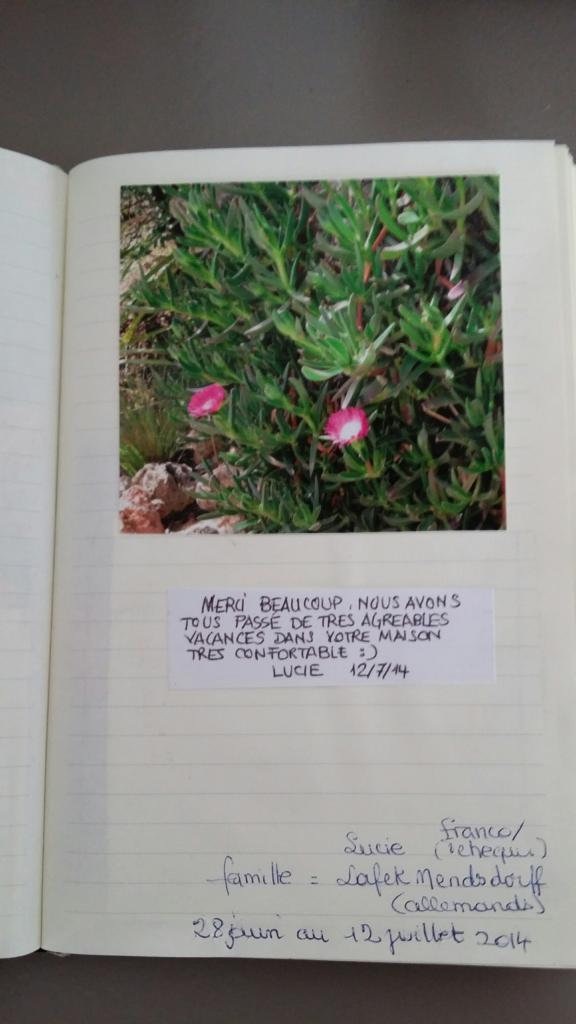 MERCI BEAUCOUP, NOUS AVONS
TOUS PASSÉ DE TRES AGREABLES
VACANCES DANS VOTRE MAISON
TRES CONFORTABLE :)
LUCIE 12/7/14
franco/
Lucie (tcheque)
famille = Lafek Mendsdorff
(allemands)
28 juin au 12 juillet 2014